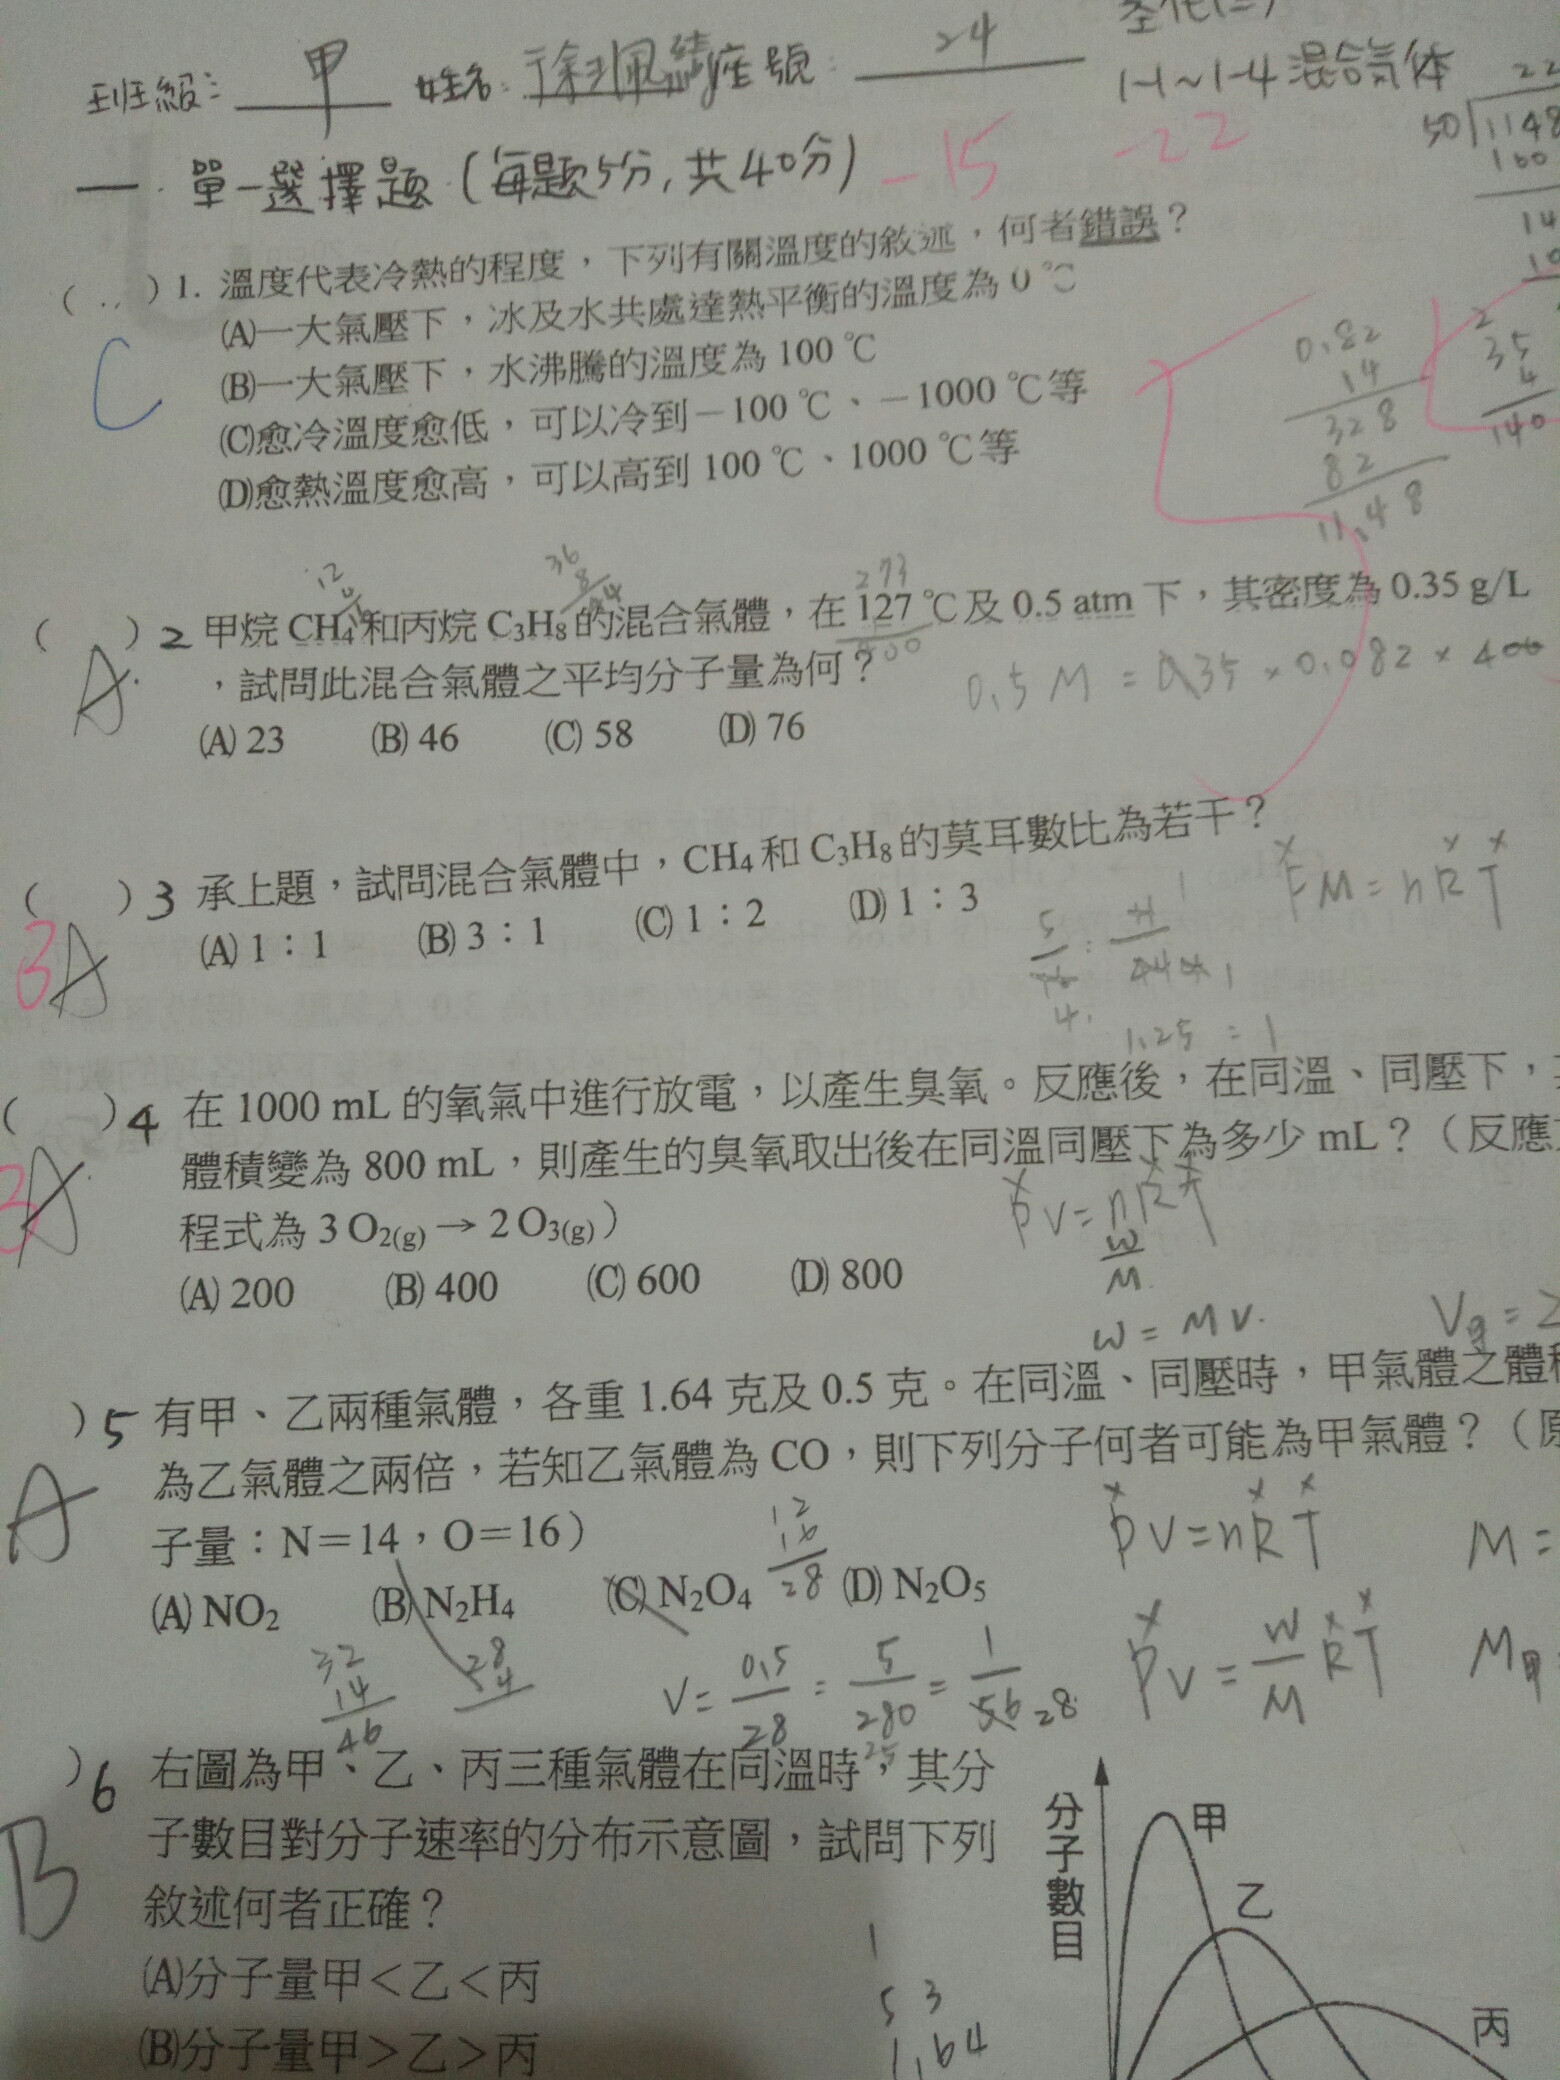 班級：甲 姓名：徐珮 座號：24
1-1~1-4 混合氣体
一.單一選擇題(每題5分,共40分) -15 -22
( )1. 溫度代表冷熱的程度，下列有關溫度的敘述，何者錯誤？
(A)一大氣壓下，冰及水共處達熱平衡的溫度為 0 ℃
(B)一大氣壓下，水沸騰的溫度為 100 ℃
(C)愈冷溫度愈低，可以冷到－100 ℃、－1000 ℃等
(D)愈熱溫度愈高，可以高到 100 ℃、1000 ℃等
C
0.82
14
328
82
11.48
35
4
140
( )2 甲烷 CH4 和丙烷 C3H8 的混合氣體，在 127 ℃及 0.5 atm 下，其密度為 0.35 g/L
，試問此混合氣體之平均分子量為何？
A
0.5 M = 0.35 × 0.082 × 400
(A) 23 (B) 46 (C) 58 (D) 76
( )3 承上題，試問混合氣體中，CH4 和 C3H8 的莫耳數比為若干？
(A) 1：1 (B) 3：1 (C) 1：2 (D) 1：3
B A
1.25 = 1
( )4 在 1000 mL 的氧氣中進行放電，以產生臭氧。反應後，在同溫、同壓下，
體積變為 800 mL，則產生的臭氧取出後在同溫同壓下為多少 mL？（反應
程式為 3 O2(g) → 2 O3(g)）
B A
PV = nRT
W
M
(A) 200 (B) 400 (C) 600 (D) 800
W = MV.
)5 有甲、乙兩種氣體，各重 1.64 克及 0.5 克。在同溫、同壓時，甲氣體之體
為乙氣體之兩倍，若知乙氣體為 CO，則下列分子何者可能為甲氣體？（
子量：N＝14，O＝16）
A
12
16
28
PV = nRT
M =
(A) NO2 (B) N2H4 (C) N2O4 (D) N2O5
32
14
46
28
4
V = 0.5/28 = 5/280 = 1/56
28
PV = W/M RT
M甲
)6 右圖為甲、乙、丙三種氣體在同溫時，其分
子數目對分子速率的分布示意圖，試問下列
敘述何者正確？
B
(A)分子量甲＜乙＜丙
(B)分子量甲＞乙＞丙
1.64
分子數目
甲
乙
丙